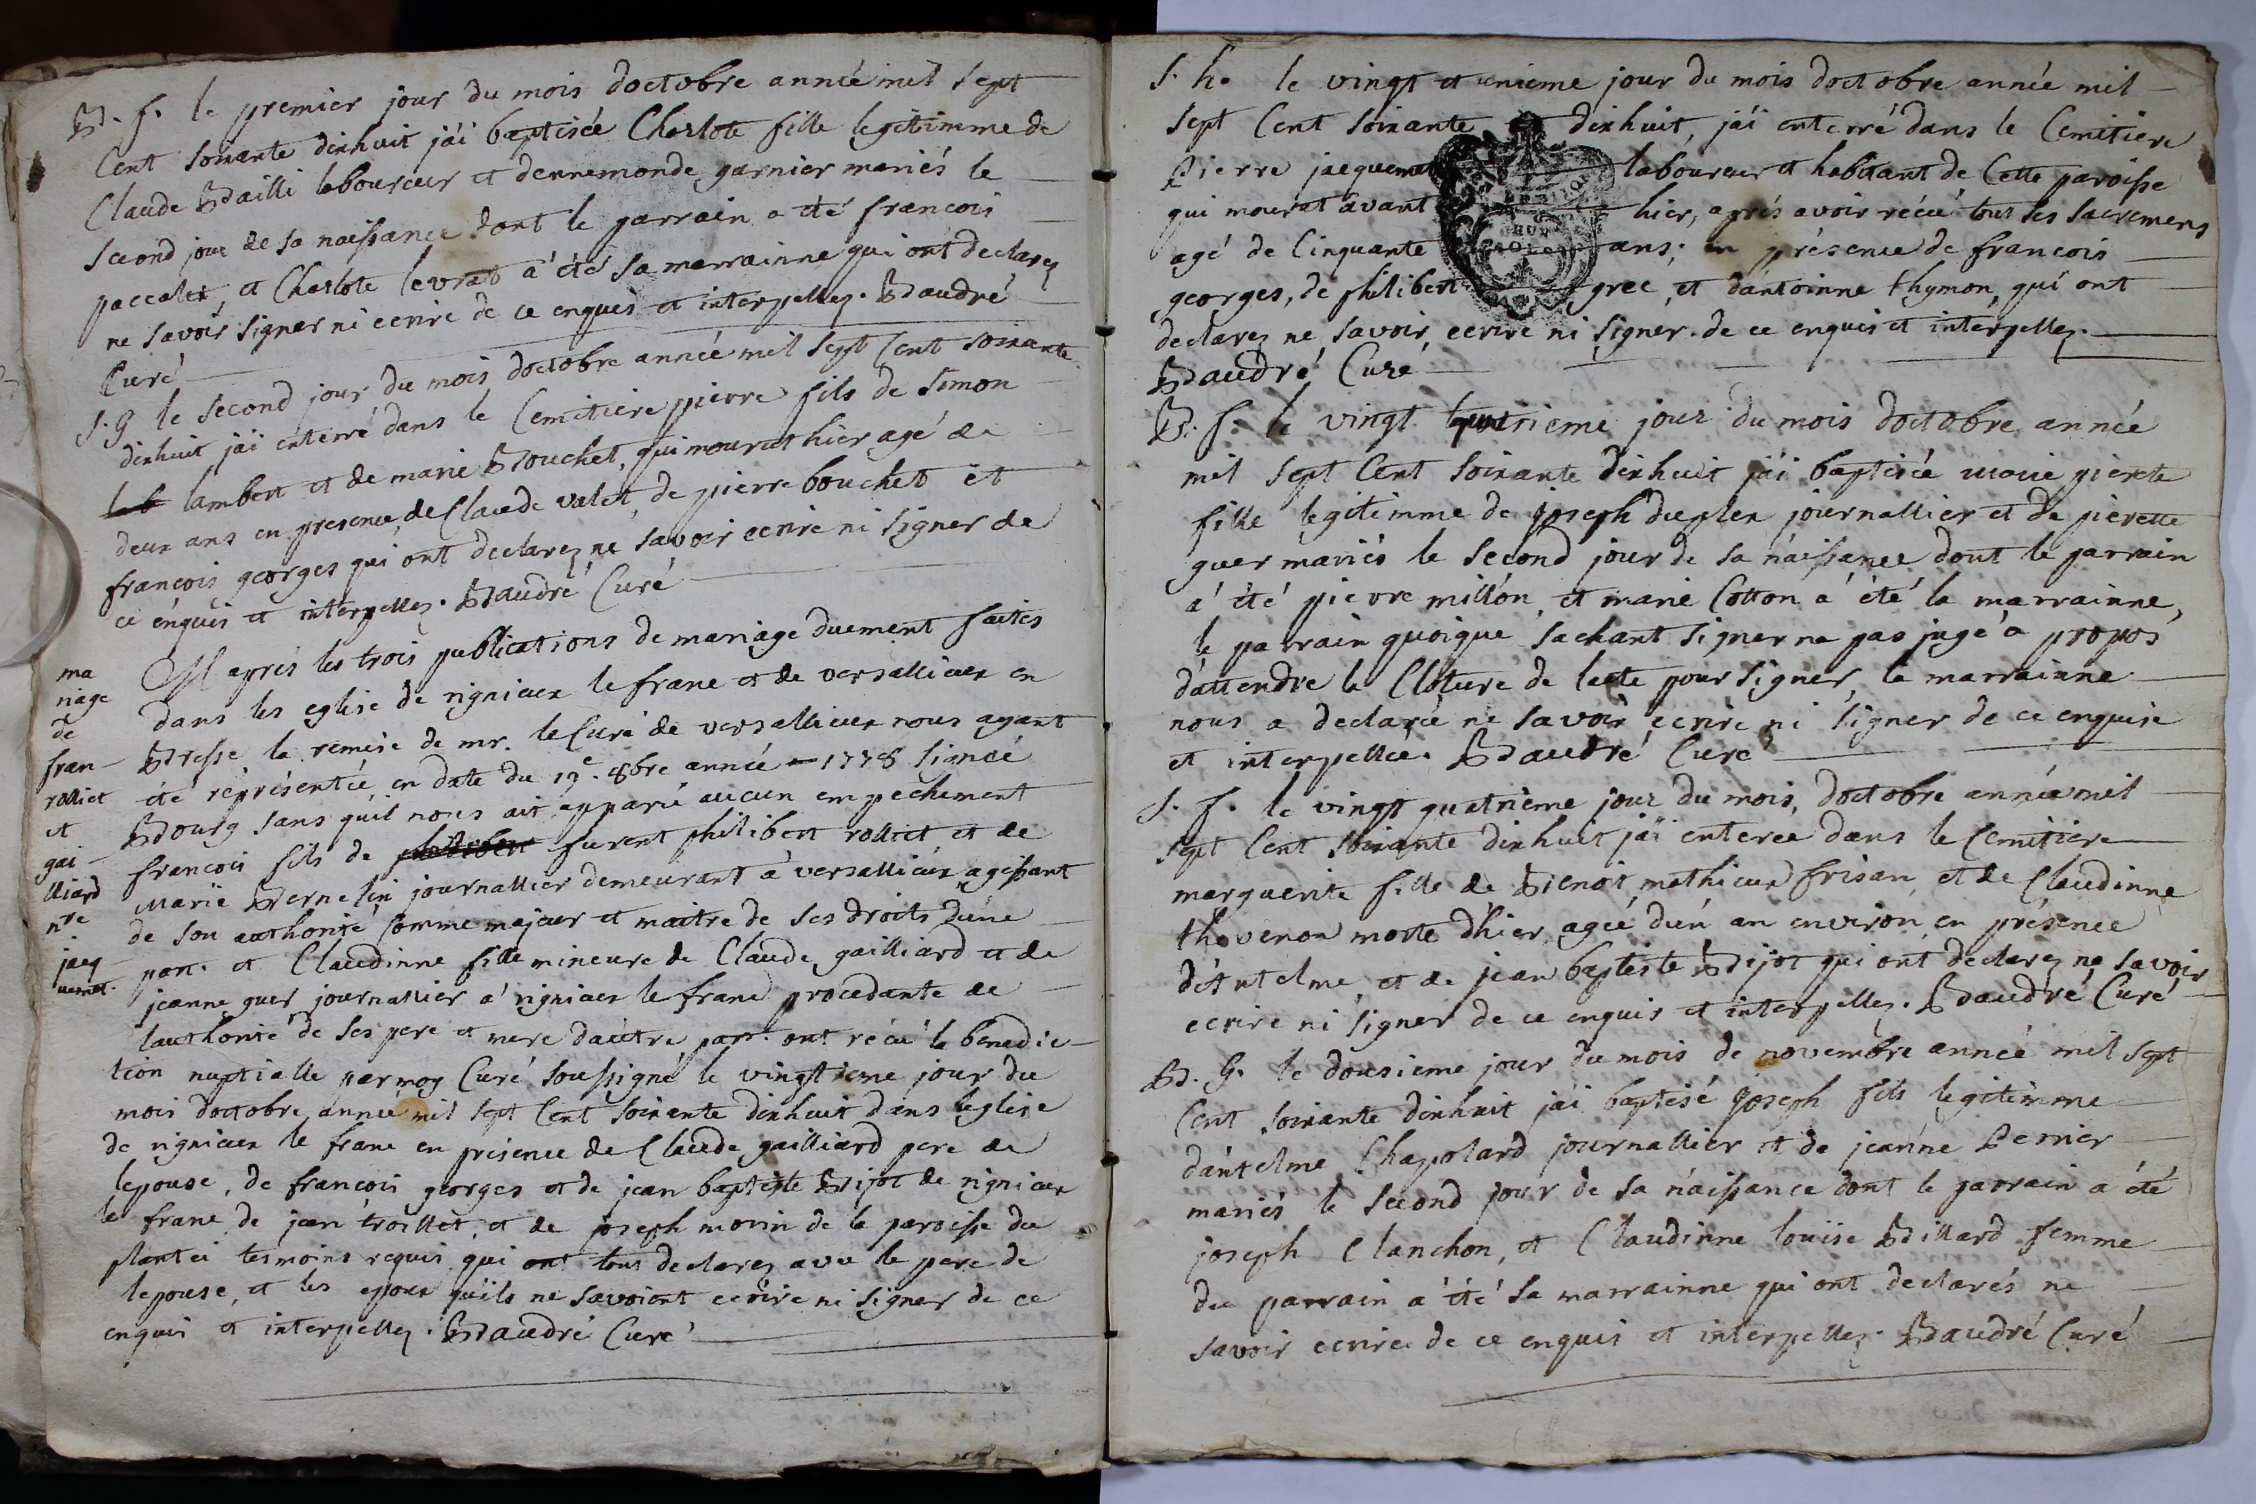 B. f. le premier jour du mois doctobre année mil sept
Cent soixante dixhuit j'ái baptisée Charlote fille legitimme de
Claude Bailli laboureur et dennemonde garnier mariés le
second jour de sa naissance dont le parrain a été francois
paccalet, et Charlote levrat a été sa marrainne qui ont declarez
ne savoir signer ni ecrire de ce enquis et interpellez. Baudré
Curé
S. G le second jour du mois doctobre année mil sept Cent soixante
dixhuit jái enterré dans le Cemitiere pierre fils de simon
lambert et de marie Bouchet, qui mourut hier agé de
deux ans en presence de Claude valet, de pierre bouchet et
francois georges qui ont declarez ne savoir ecrire ni signer de
ce enquis et interpellez. Baudré Curé
ma
riage
de
fran
rolliet
et
gai
lliard
nre
jacq
uemet.
M aprés les trois publications de mariage duement faites
dans les eglise de rignieux le franc et de versallieux en
Bresse la remise de mr. le Curé de versallieux nous ayant
été réprésentée en date du 19e. 8bre année 1778 signée
Bourg sans quil nous ait apparu aucun empechement
francois fils de philibert furent philibert rolliet et de
Marie Bernelin journallier demeurant a versallieux agissant
de son authorité Comme majeur et maitre de ses droits dune
part. et Claudinne fille mineure de Claude gailliard et de
jeanne guer journallier a rignieux le franc procedante de
lauthorité de ses pere et mere dautre part. ont récu la benedic
tion nuptialle par moy Curé soussigné le vingtieme jour du
mois doctobre année mil sept Cent soixante dixhuit dans leglise
de rignieux le franc en présence de Claude gailliard pere de
lepouse, de francois georges et de jean baptiste Bijot de rignieux
le franc de jean troillet, et de joseph morin de la paroisse du
plantei tesmoins requis qui ont tous declarez avec le pere de
lepouse, et les epoux quils ne savoiont ecrire ni signer de ce
enquis et interpellez. Baudré Curé
S. h. le vingt et unieme jour du mois doctobre année mil
sept Cent soixante dixhuit, jái enterré dans le Cemitiere
Pierre jacquemet laboureur et habitant de Cette paroisse
qui mourut avant hier, aprés avoir récu tous les sacremens
agé de Cinquante ans; en présence de francois
georges, de philibert gree, et dantoinne thymon, qui ont
declarez ne savoir ecrire ni signer. de ce enquis et interpellez.
Baudré Curé
B. f. le vingt jour du mois doctobre année
mil sept Cent soixante dixhuit jái baptisée marie pierete
fille legitimme de joseph duplex journallier et de pierette
guer mariés le second jour de sa náissance dont le parrain
a été pierre millón, et marie Cotton a été la marrainne,
le parrain quoique sachant signer na pas jugé a propos
dattendre la Cloture de lacte pour signer, la marrainne
nous a declarée ne savoir ecrire ni signer de ce enquise
et interpellée. Baudré Curé
S. f. le vingt quatrieme jour du mois, doctobre année mil
sept Cent soixante dixhuit jái enterée dans le Cemitiere
marguerite fille de Benoit mathieux frisan, et de Claudinne
thovenon morte d'hier agée dun an environ en présence
dAntelme, et de jean baptiste Bijot qui ont declarez ne savoir
ecrire ni signer de ce enquis et interpellez. Baudré Curé
B. G. le dousieme jour du mois de novembre année mil sept
Cent soixante dixhuit jái baptisé joseph fils legitimme
dantelme Chapolard journallier et de jeanne Perrier
mariés le second jour de sa náissance dont le parrain a été
joseph Clanchon, et Claudinne louise Billard femme
du parrain a été sa marrainne qui ont declarés ne
savoir ecrire de ce enquis et interpellez. Baudré Curé